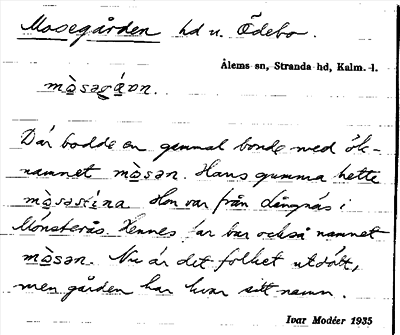 Mosegården hd u. Ödebo.
Ålems sn, Stranda hd, Kalm. l.
mò̱səgá̱ɒn.
Där bodde en gammal bonde med ök-
namnet mò̱sən. Hans gumma hette
mò̱səstina Hon var från Långnäs i
Mönsterås. Hennes far bar också namnet
mò̱sən. Nu är det folket utdött,
men gården har kvar sitt namn.
Ivar Modéer 1935